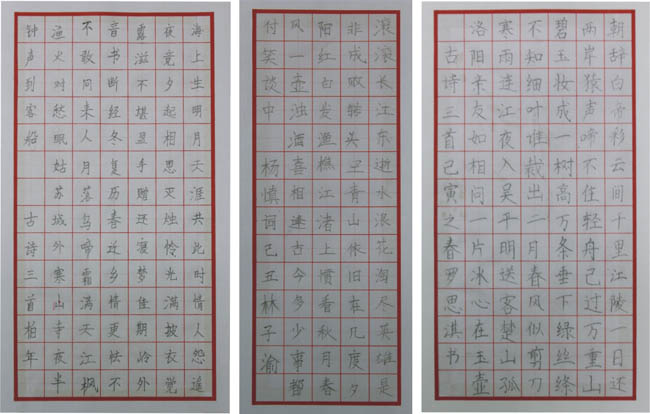 海上生明月天涯共此时情人怨遥
夜竟夕起相思灭烛怜光满披衣觉
露滋不堪盈手赠还寝梦佳期岭外
音书断经冬复历春近乡情更怯不
不敢问来人月落乌啼霜满天江枫
渔火对愁眠姑苏城外寒山寺夜半
钟声到客船 古诗三首柏年
滚滚长江东逝水浪花淘尽英雄是
非成败转头空青山依旧在几度夕
阳红白发渔樵江渚上惯看秋月春
风一壶浊酒喜相逢古今多少事都
付笑谈中 杨慎词己丑林子渝
朝辞白帝彩云间千里江陵一日还
两岸猿声啼不住轻舟已过万重山
碧玉妆成一树高万条垂下绿丝绦
不知细叶谁裁出二月春风似剪刀
寒雨连江夜入吴平明送客楚山孤
洛阳亲友如相问一片冰心在玉壶
古诗三首己寅之春罗思淇书